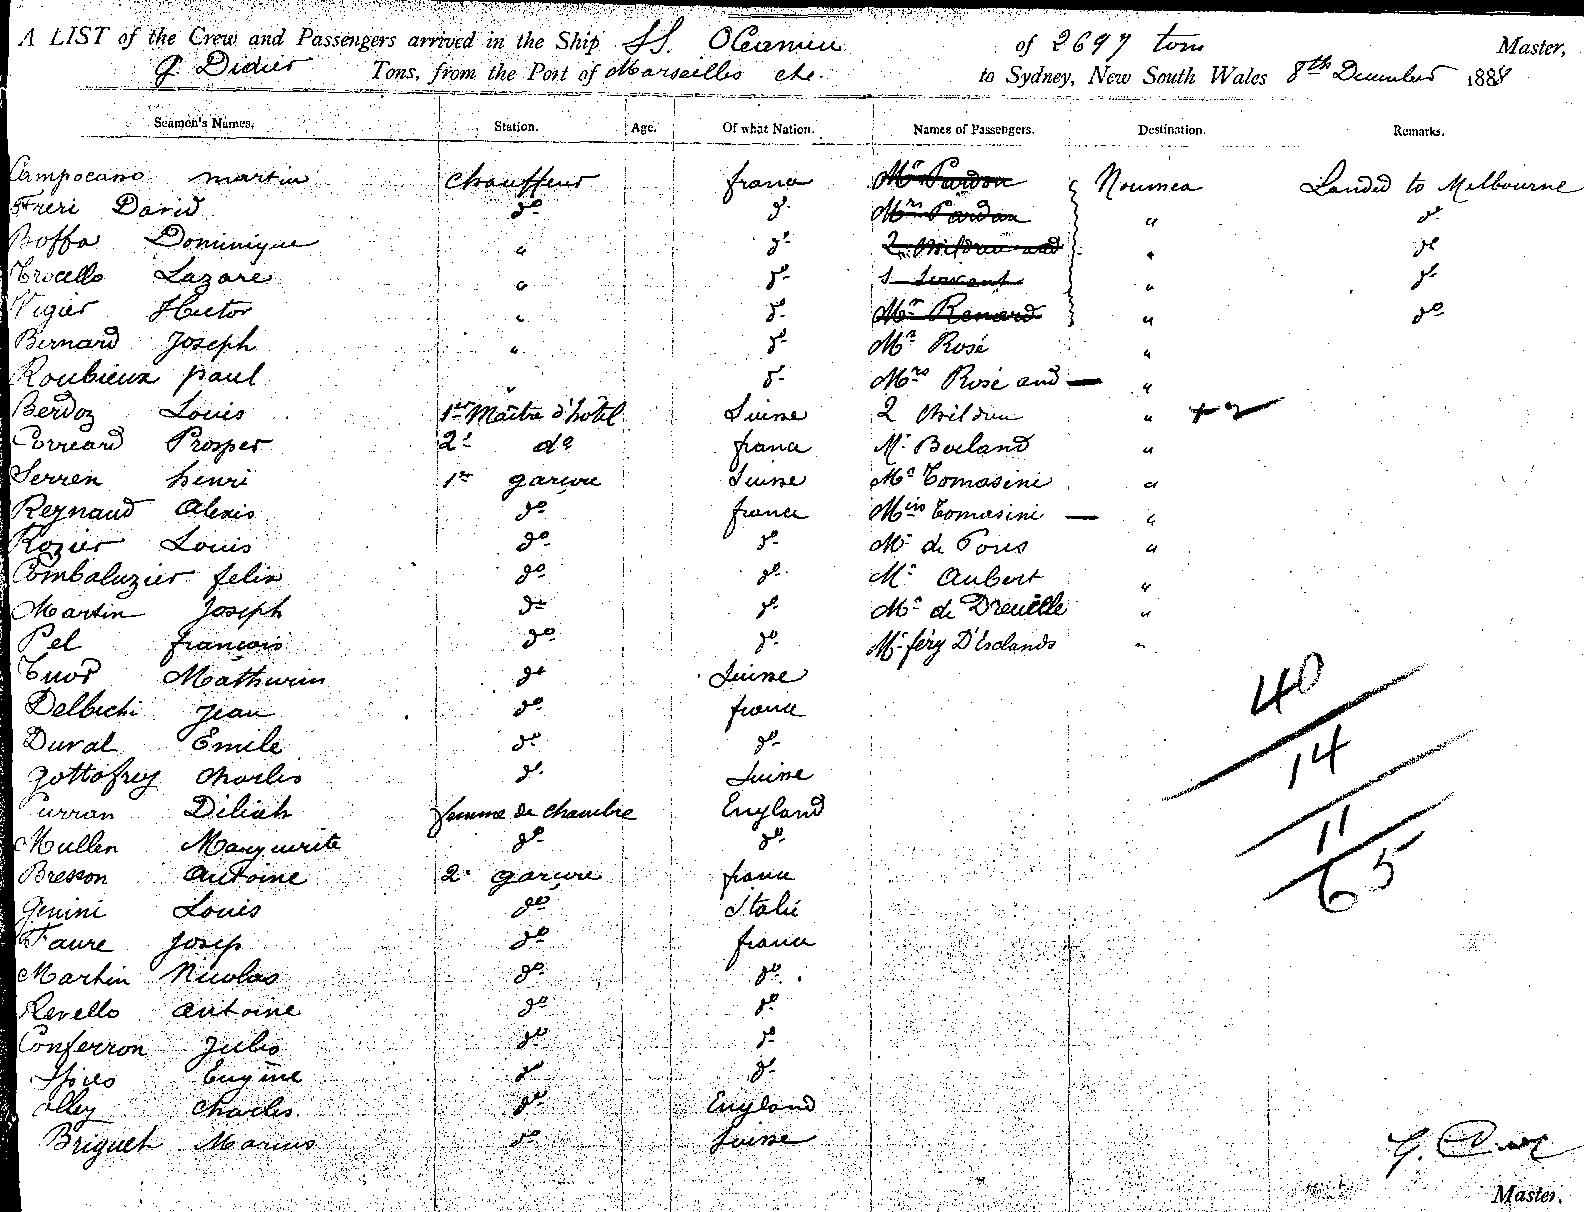 A LIST of the Crew and Passengers arrived in the Ship SS. Oceanien of 2697 tons Master,
G. Didier Tons, from the Port of Marseilles etc. to Sydney, New South Wales 8th December 188
Seamen's Names. Station. Age. Of what Nation. Names of Passengers. Destination. Remarks.
Campocano martin chauffeur france Mr Pardon Noumea Landed to Melbourne
Freri David do do Mrs Pardon " do
Boffa Dominique " do 2 Children and " do
Trocello Lazare " do 1 Servant " do
Vigier Hector " do Mr Renard " do
Bernard Joseph " do Mr Rosé "
Roubieux paul " do Mrs Rosé and — "
Berdoz Louis 1er Maître d'hôtel Suisse 2 Children "
Correard Prosper 2e do france Mr "
Serren henri 1er garçon Suisse Mr Tomasini "
Reynaud Alexis do france Miss Tomasini — "
Rozier Louis do do Mr de "
Combaluzier felix do do Mr Aubert "
Martin Joseph do do Mr de Dreuëlle "
Pel françois do do Mr féry D'Esclands "
Tuor Mathurin do Suisse
Delbichi Jean do france
Duval Emile do do
gottofrey Charles do Suisse
Curran Déliah femme de chambre England
Mullen Marguerite do do
Bresson Antoine 2e garçon france
Louis do Italie
Faure Josep do france
Martin Nicolas do do
Revello Antoine do do
Conferron Jules do do
Eugène do do
Charles do England
Briguet Marius do Suisse
40
14
11
65
G.
Master.